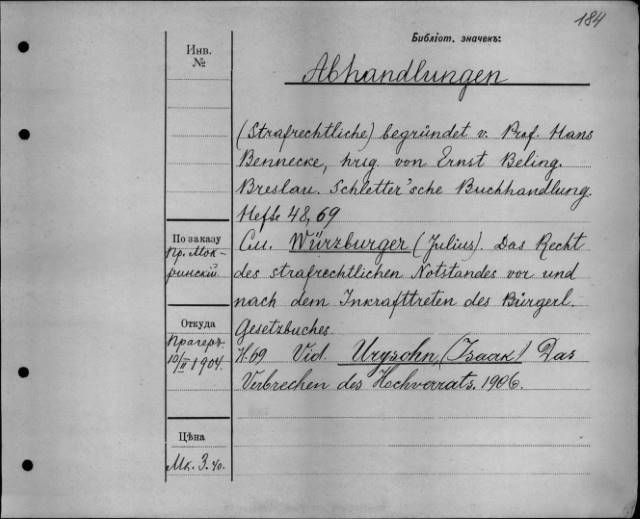 184
Библіот. значекъ:
Инв. №
Abhandlungen
(Strafrechtliche) begründet v. Prof. Hans
Bennecke, hrsg. von Ernst Beling.
Breslau. Schletter'sche Buchhandlung.
Hefte 48, 69
По заказу
Пр. Мок-
ринскій
См. Würzburger (Julius). Das Recht
des strafrechtlichen Notstandes vor und
nach dem Inkrafttreten des Bürgerl.
Gesetzbuches.
Откуда
Прагеръ
10/II 1904.
H. 69 Vid. Urysohn (Isaak) Das
Verbrechen des Hochverrats. 1906.
Цѣна
Mk. 3.40.